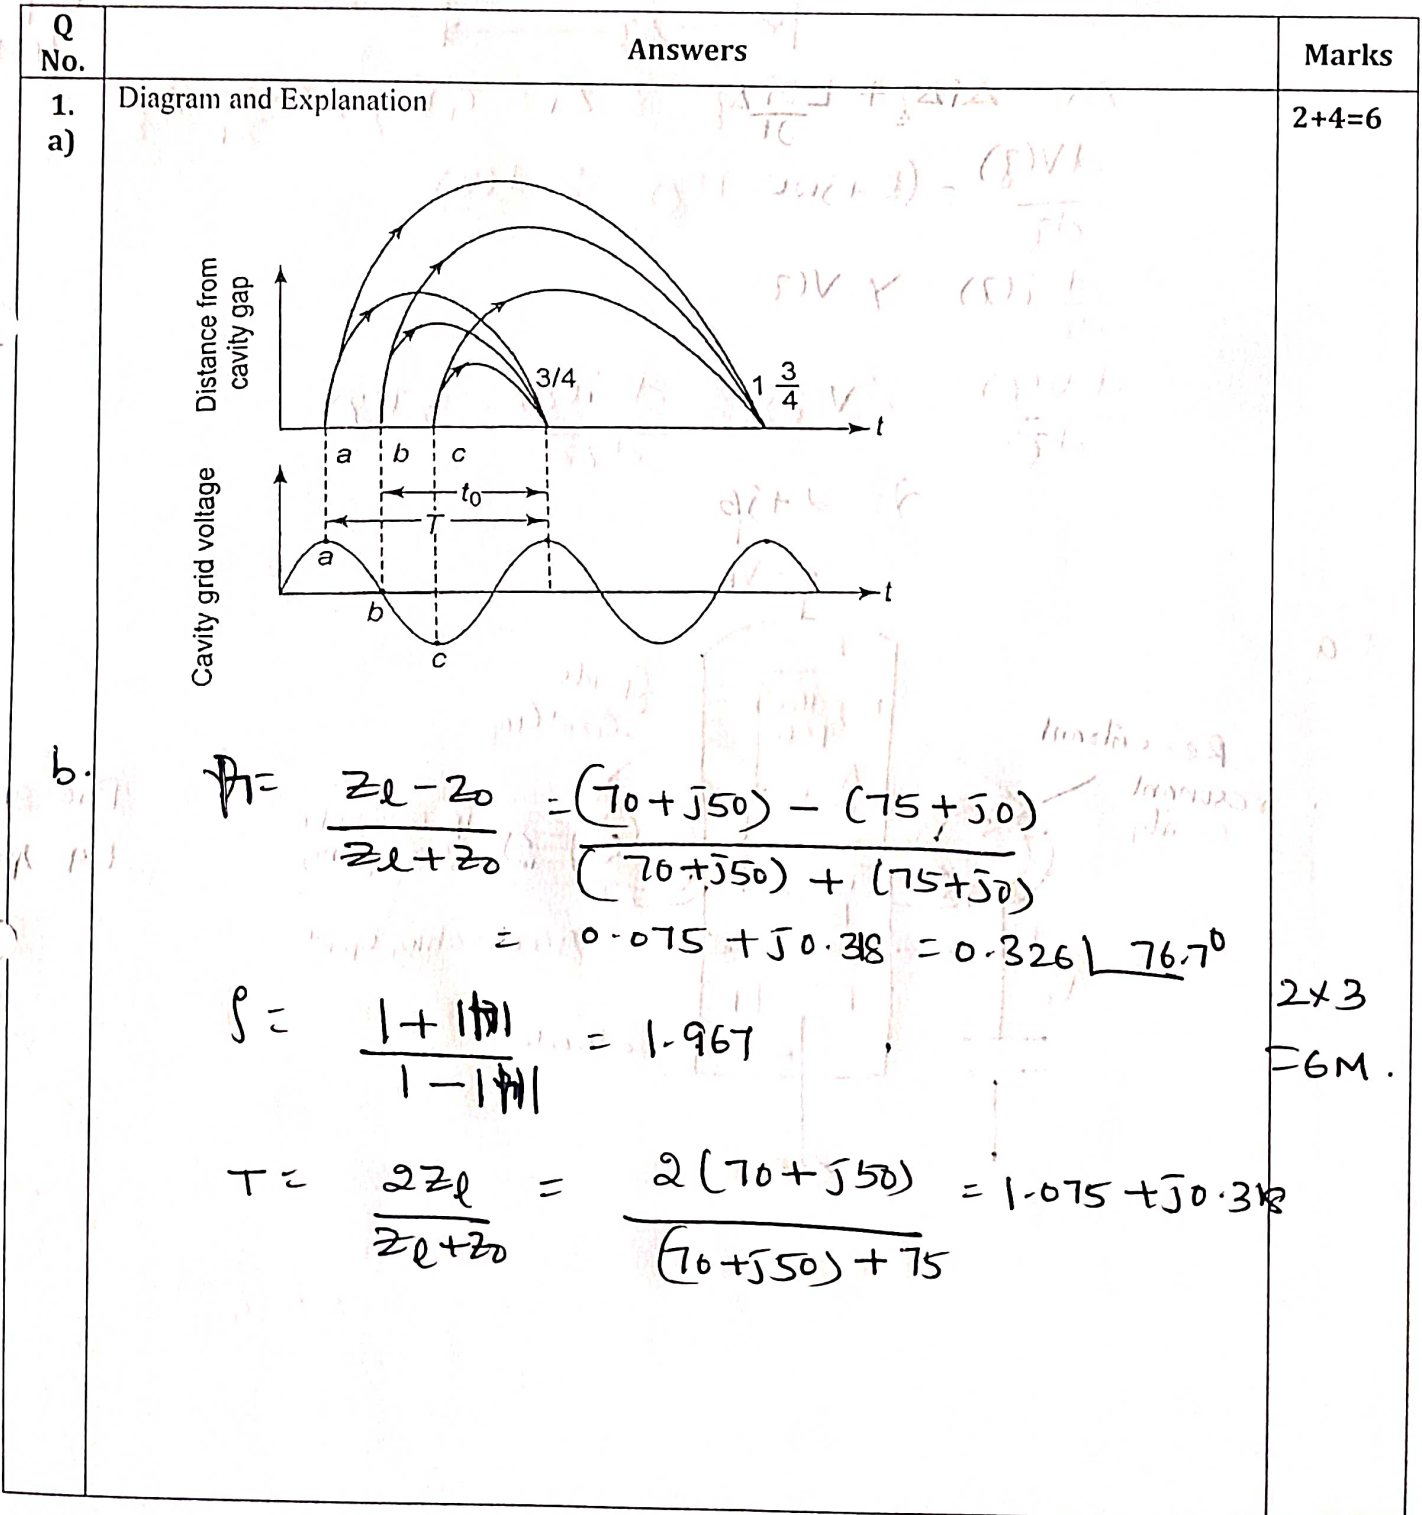 Q No.
Answers
Marks
1. a)
Diagram and Explanation
2+4=6
Distance from cavity gap
3/4
1 3/4
t
a b c
t0
T
Cavity grid voltage
a
b
c
t
b.
Zl - Z0 / Zl + Z0 = (70 + j50) - (75 + j0) / (70 + j50) + (75 + j0)
= 0.075 + j0.318 = 0.326 ∠76.7°
ρ = 1 + | | / 1 - | | = 1.967
2×3
=6M.
T = 2Zl / Zl + Z0 = 2(70 + j50) / (70 + j50) + 75 = 1.075 + j0.318